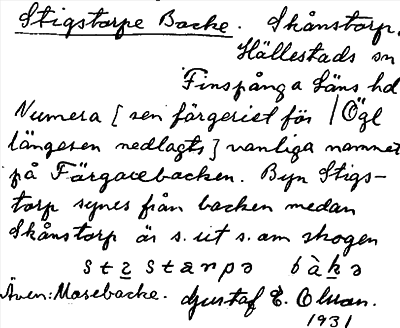 Stigstorpe Backe. Skånstorp.
Hällestads sn
Finspånga Läns hd
Numera [sen färgeriet för / Ögl
längesen nedlagts] vanliga namnet
på Färgarebacken. Byn Stigs-
torp synes från backen medan
Skånstorp är s. ut s. am skogen
Även: Masebacke. Gustaf E. Olsson.
1931